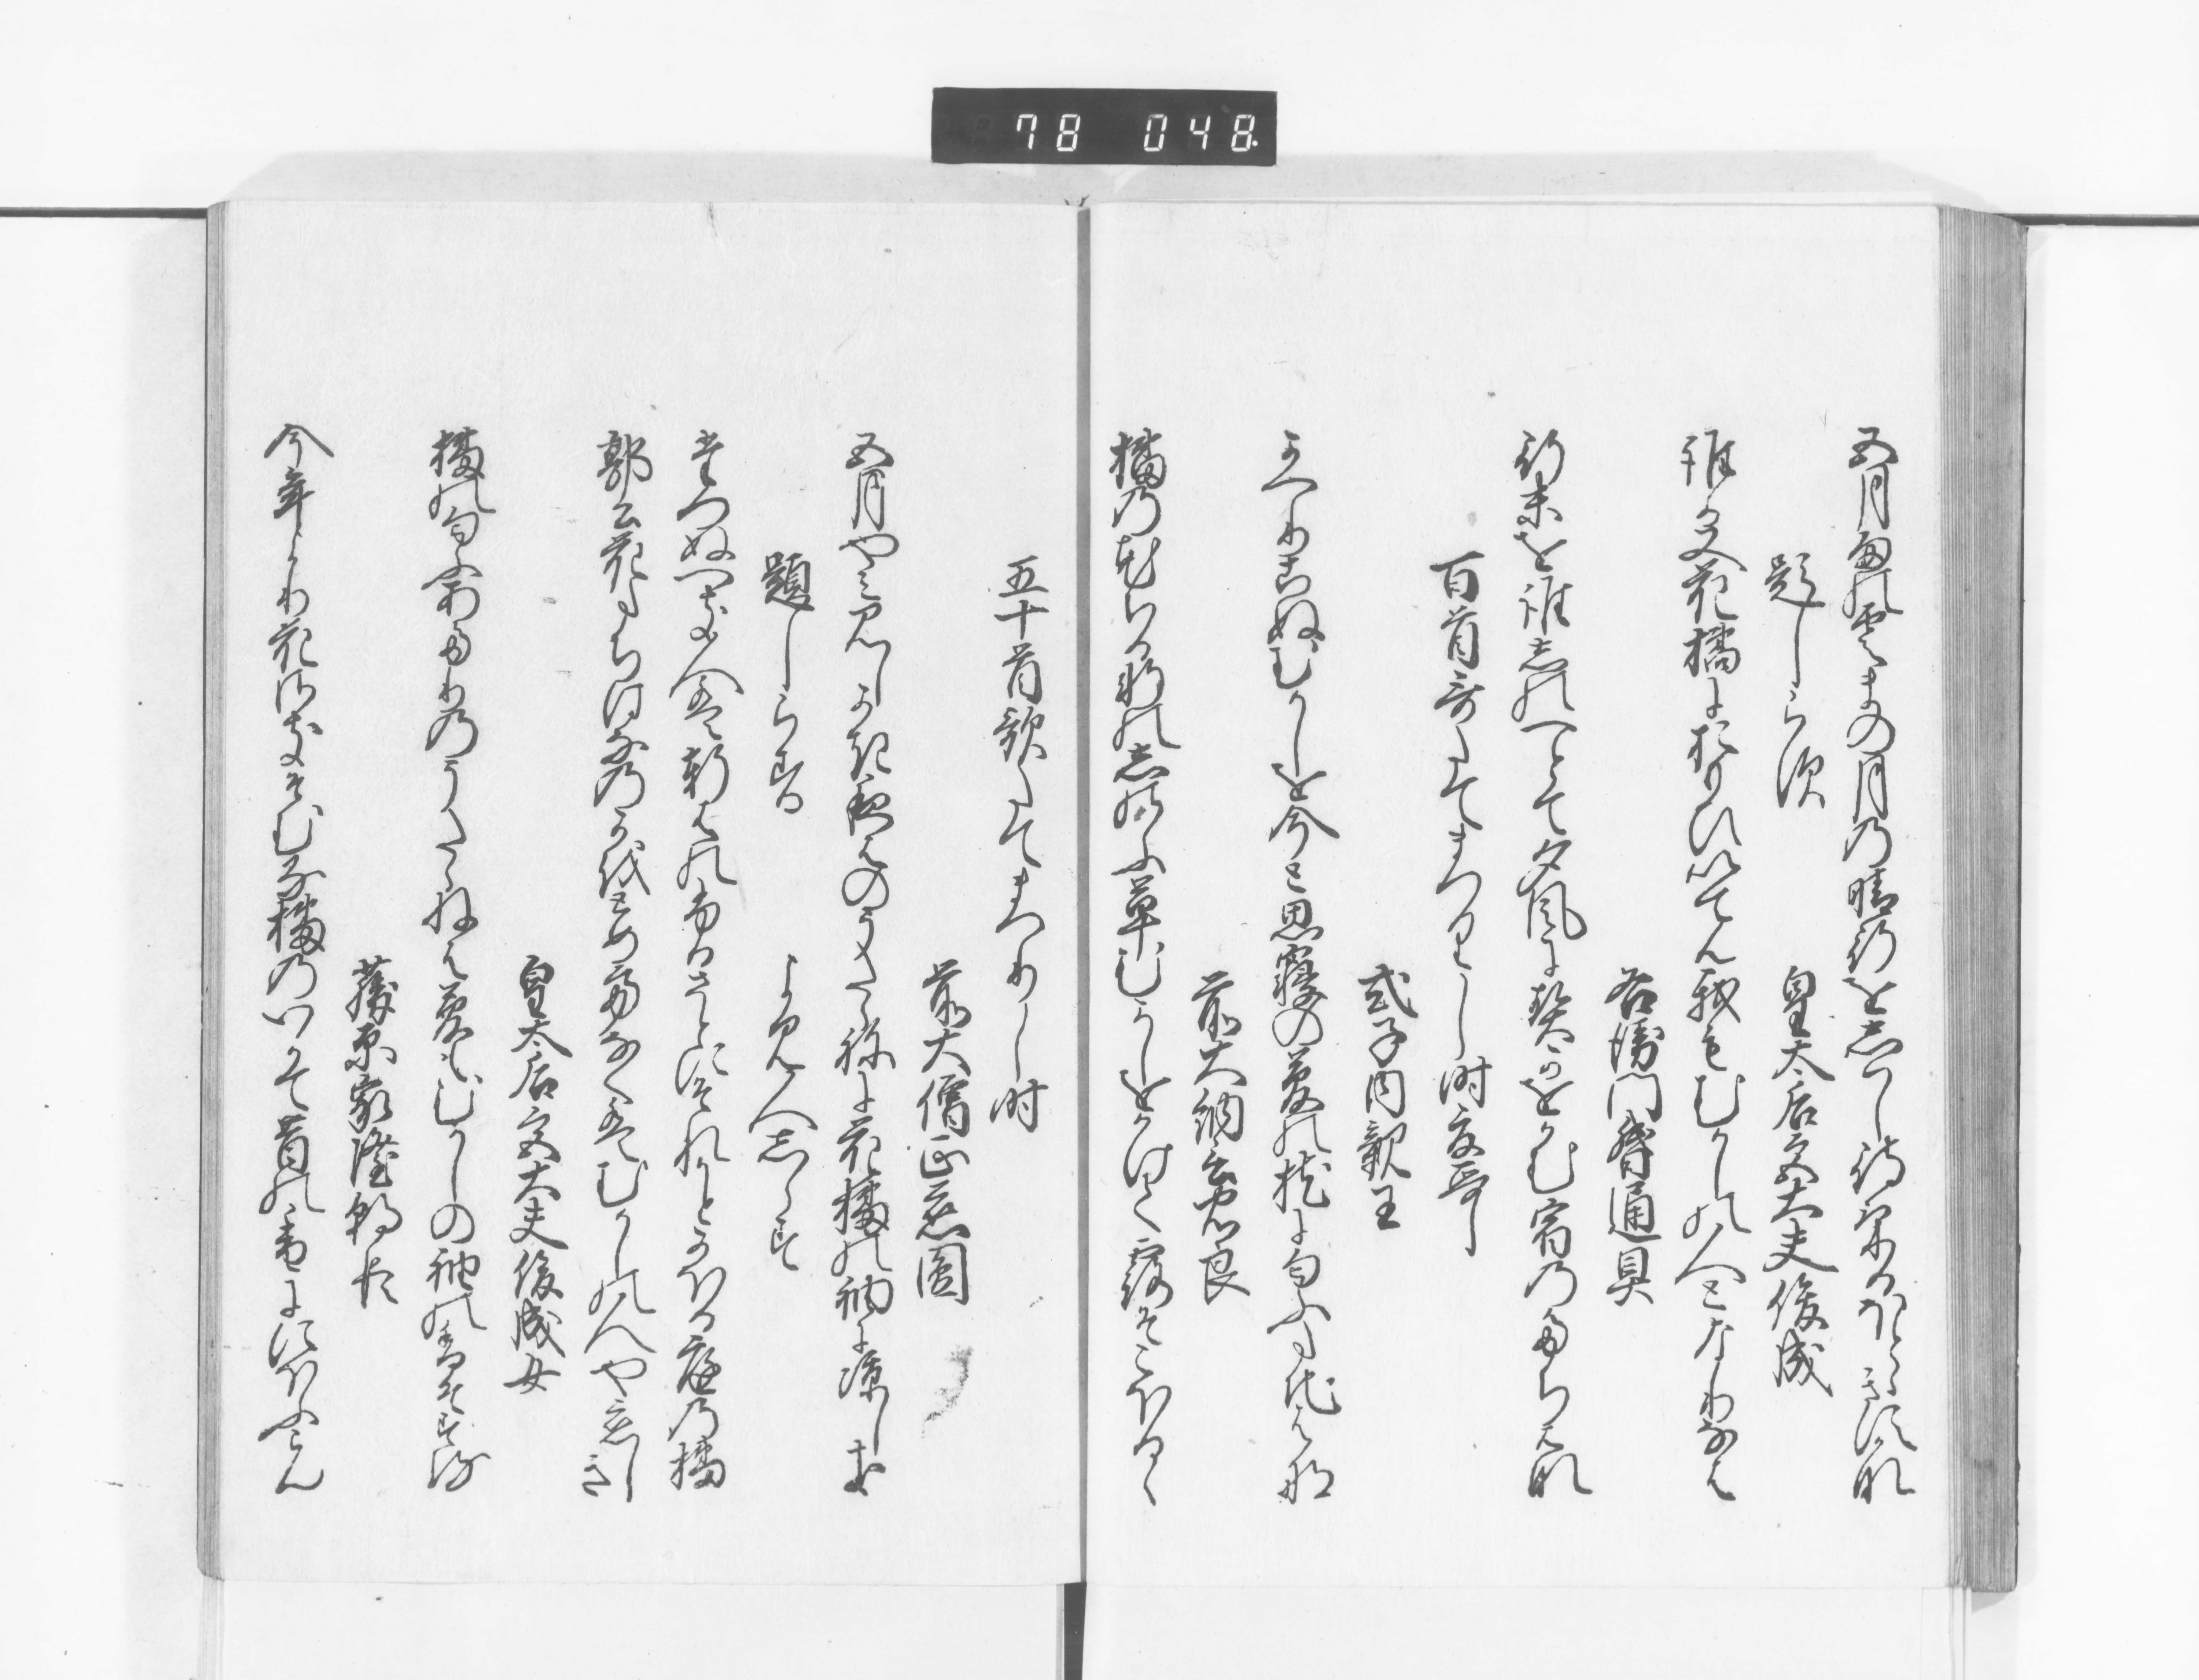 78 048
五月雨の雲まの月の晴行をしはし待ける郭公哉
題しらす
皇太后宮大夫俊成
誰か又花橘に思ひいてん我もむかしの人となりなは
右衛門督通具
行末を誰しのへとて夕風に契かをかむ宿のたちはな
百首哥たてまつりし時夏哥
式子内親王
かへりこぬむかしを今と思寝の夢の枕に匂ふたち花
前大納言忠良
橘の花ちる軒のしのふ草むかしをかけて露そこほるゝ
五十首歌たてまつりし時
前大僧正慈圓
五月やみみしかき夜はのうたゝねに花橘の袖に涼しき
題しらす
よみ人しらす
たつぬへき人は軒はの故郷にそれかとかほる庭の橘
郭公花たちはなのかをとめてなくはむかしの人や恋しき
皇太后宮大夫俊成女
橘の匂ふあたりのうたゝねは夢もむかしの袖の香そする
藤原家隆朝臣
今年より花さきそむる橘のいかて昔の香にゝほふらん